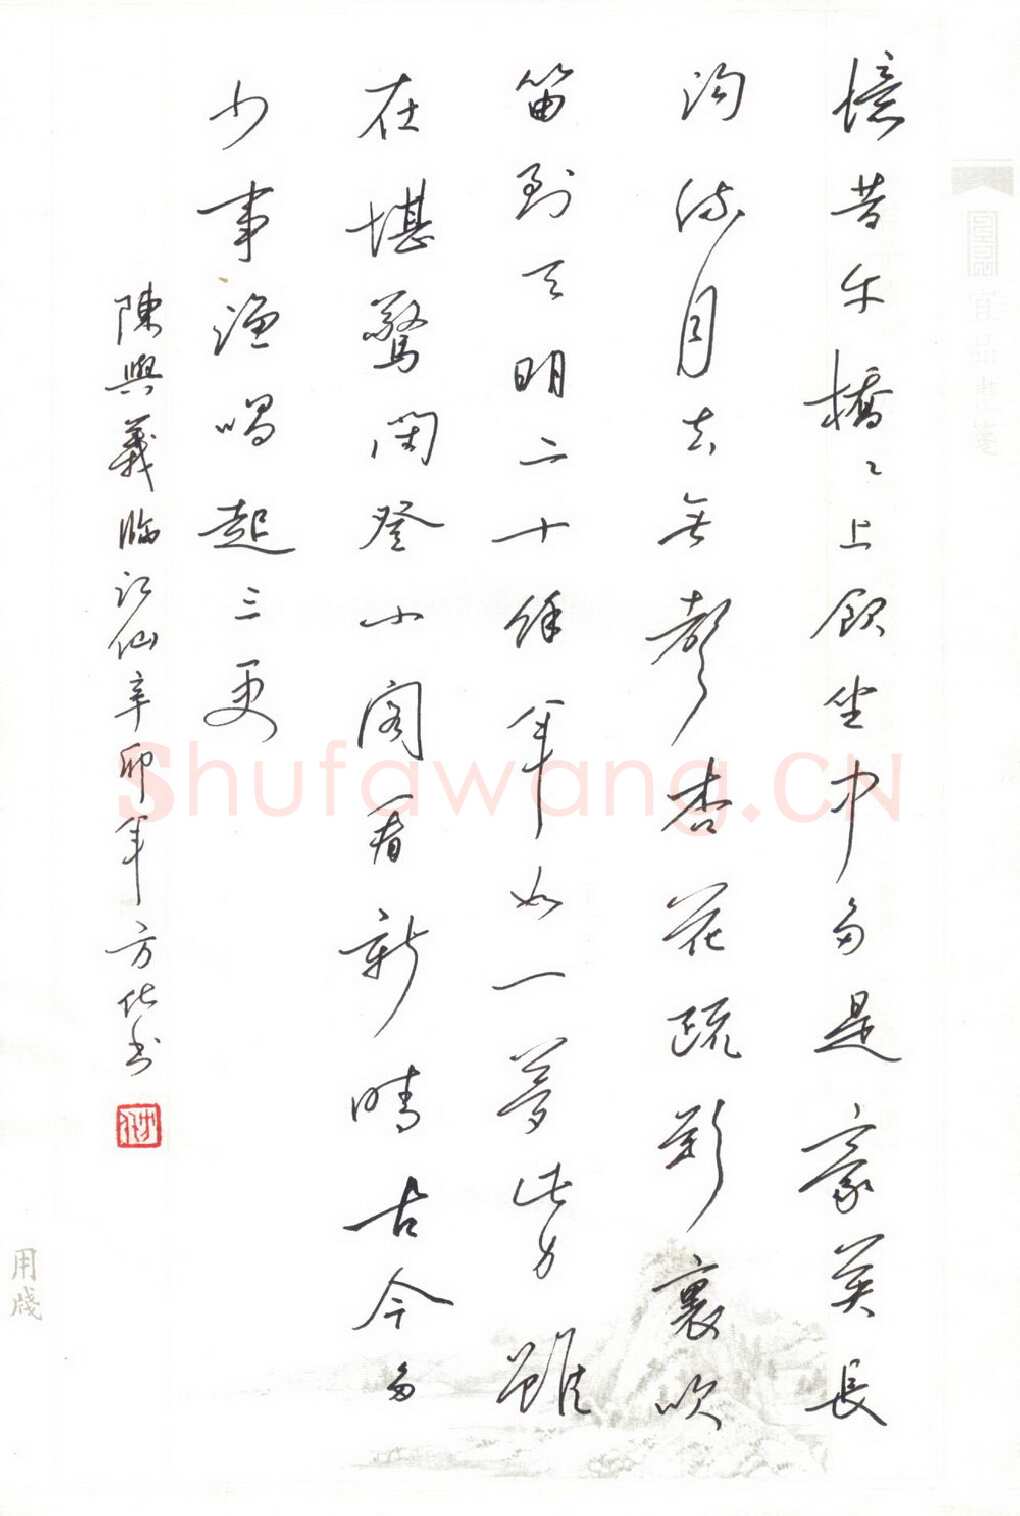 憶昔午橋〻上飲坐中多是豪英長
沟流月去無聲杏花疏影裏吹
笛到天明二十餘年如一夢此身雖
在堪驚閑登小閣看新晴古今多
少事漁唱起三更
陳與義臨江仙辛卯年方书
Shufawang.CN
宜品
用牋